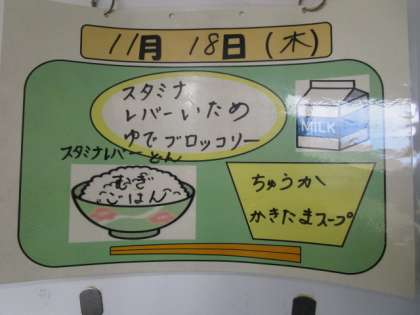 11月 18日(木)
スタミナ
レバーいため
ゆでブロッコリー
スタミナレバーどん
むぎ
ごはん
MILK
ちゅうか
かきたまスープ